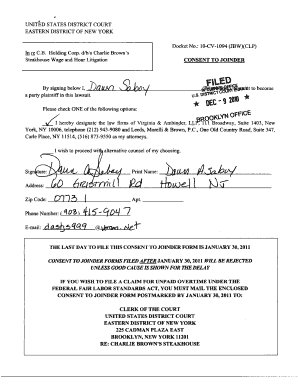 UNITED STATES DISTRICT COURT
EASTERN DISTRICT OF NEW YORK
Docket No.: 10-CV-1094 (JBW)(CLP)
In re C.B. Holding Corp. d/b/a Charlie Brown's
Steakhouse Wage and Hour Litigation
CONSENT TO JOINDER
FILED
By signing below I, Dawn Saboy consent to become
a party plaintiff in this lawsuit.
U.S. DISTRICT COURT
★ DEC - 9 2010 ★
Please check ONE of the following options:
BROOKLYN OFFICE
I hereby designate the law firms of Virginia & Ambinder, LLP, 111 Broadway, Suite 1403, New
York, NY 10006, telephone (212) 943-9080 and Leeds, Morelli & Brown, P.C., One Old Country Road, Suite 347,
Carle Place, NY 11514, (516) 873-9550 as my attorneys.
I wish to proceed with alternative counsel of my choosing.
Signature: Print Name: Dawn A Saboy
Address: 60 Gristmill Rd Howell NJ
Zip Code: 07731 Apt.
Phone Number: (908) 415-9047
E-mail:
THE LAST DAY TO FILE THIS CONSENT TO JOINDER FORM IS JANUARY 30, 2011
CONSENT TO JOINDER FORMS FILED AFTER JANUARY 30, 2011 WILL BE REJECTED
UNLESS GOOD CAUSE IS SHOWN FOR THE DELAY
IF YOU WISH TO FILE A CLAIM FOR UNPAID OVERTIME UNDER THE
FEDERAL FAIR LABOR STANDARDS ACT, YOU MUST MAIL THE ENCLOSED
CONSENT TO JOINDER FORM POSTMARKED BY JANUARY 30, 2011 TO:
CLERK OF THE COURT
UNITED STATES DISTRICT COURT
EASTERN DISTRICT OF NEW YORK
225 CADMAN PLAZA EAST
BROOKLYN, NEW YORK 11201
RE: CHARLIE BROWN'S STEAKHOUSE